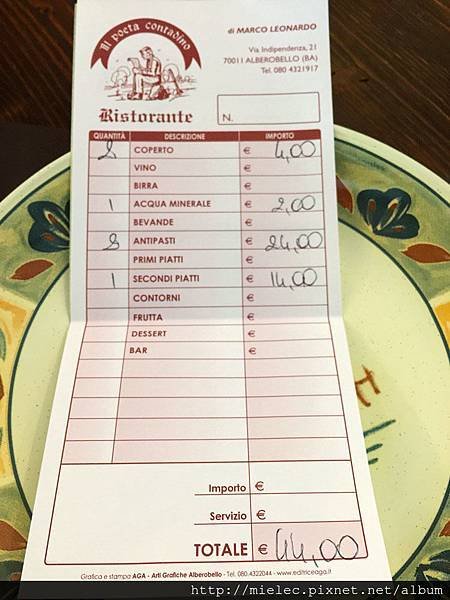 Il poeta contadino
di MARCO LEONARDO
Via Indipendenza, 21
70011 ALBEROBELLO (BA)
Tel. 080 4321917
Ristorante
N.
QUANTITÀ DESCRIZIONE IMPORTO
2 COPERTO € 4,00
VINO €
BIRRA €
1 ACQUA MINERALE € 2,00
BEVANDE €
2 ANTIPASTI € 24,00
PRIMI PIATTI €
1 SECONDI PIATTI € 14,00
CONTORNI €
FRUTTA €
DESSERT €
BAR €
Importo €
Servizio €
TOTALE € 44,00
Grafica e stampa AGA - Arti Grafiche Alberobello - Tel. 080.4322044 - www.editriceaga.it
http://mielec.pixnet.net/album